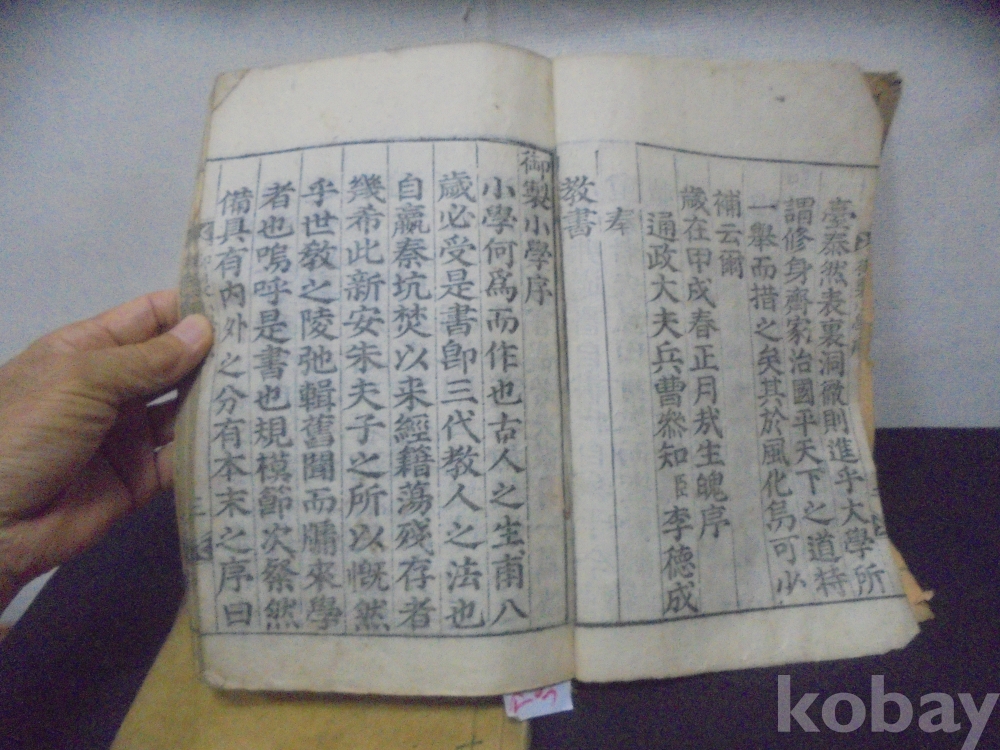 臺泰然表裏洞徹則進乎大學所
謂修身齊家治國平天下之道特
一舉而措之矣其於風化烏可少
補云爾
歲在甲戌春正月哉生魄序
通政大夫兵曹叅知臣李德成
奉
教書
御製小學序
小學何爲而作也古人之生甫八
歲必受是書卽三代教人之法也
自嬴秦坑焚以来經籍蕩殘存者
幾希此新安朱夫子之所以慨然
乎世敎之陵弛輯舊聞而牖來學
者也嗚呼是書也規模節次粲然
備具有内外之分有本末之序曰
kobay